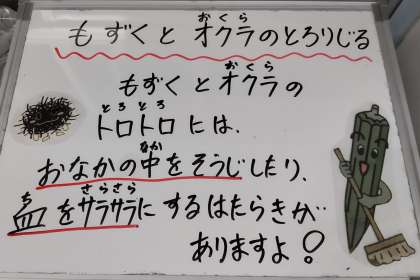 もずくと オクラのとろりじる
おくら
もずくとオクラの
おくら
トロトロには、
とろとろ
おなかの中をそうじしたり、
なか
血をサラサラにするはたらきが
ち さらさら
ありますよ!